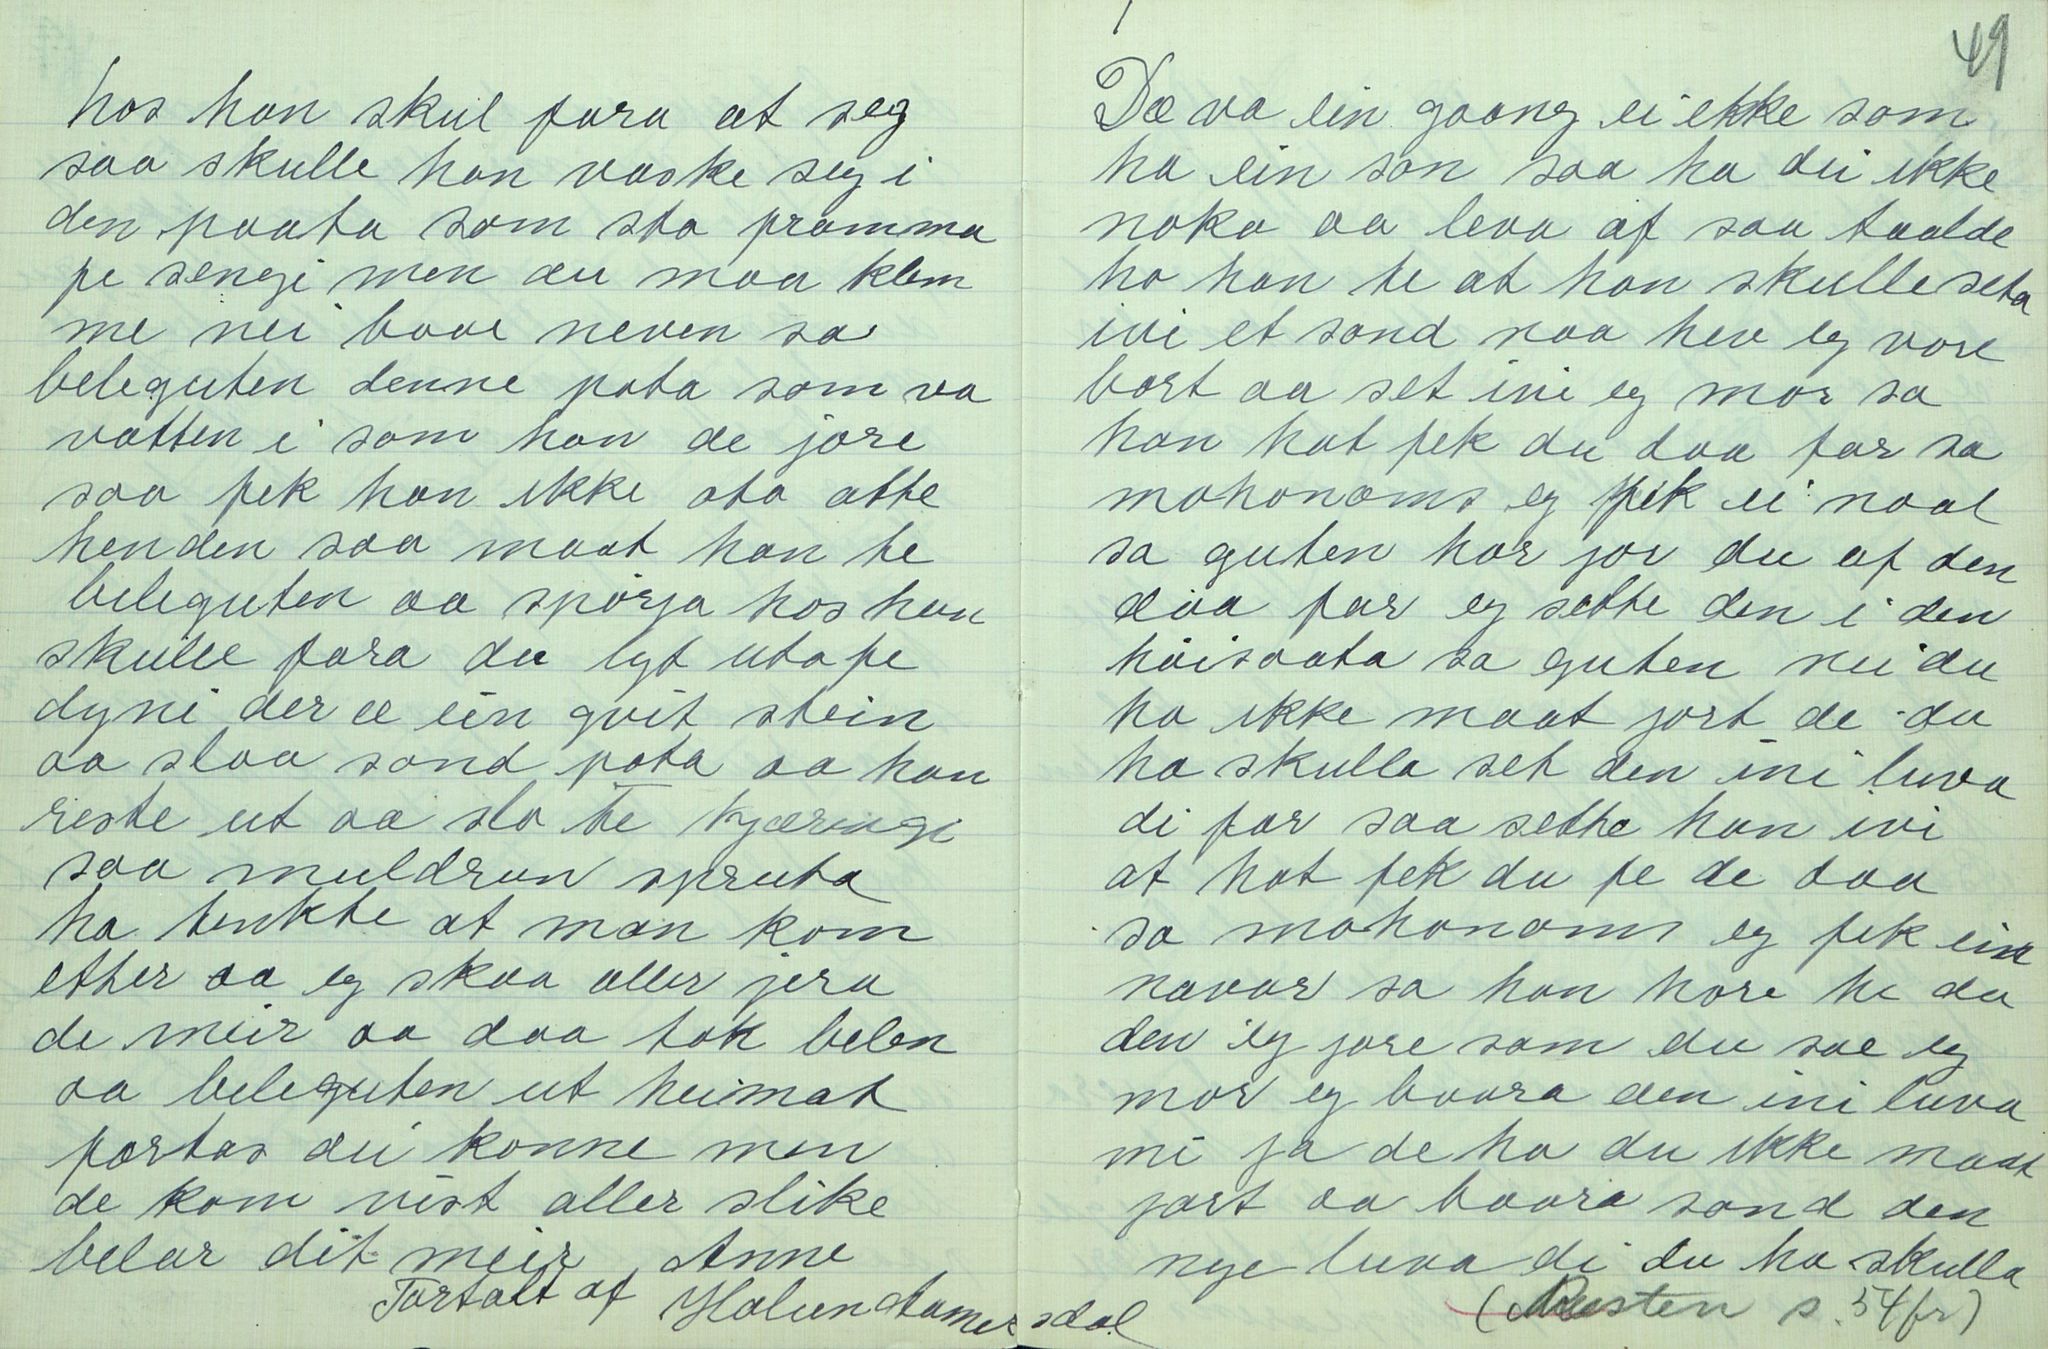 hos han skul fara at seg
saa skulle han vaske seg i
den paata som sto framma
fe sengi men du maa klem
me nei baae neven sa
beleguten denne pota som va
vatten i som han de jore
saa fek han ikke ata atte
henden saa maat han te
beleguten aa spørja hos han
skulle fara du lyt uta fe
dyni der æ ein qvit stein
aa slaa sond pota aa han
reste ut aa slo te kjæringi
saa muldrun spruta
ha tenkte at man kom
etter aa eg skaa aller jera
de meir aa daa tok belen
aa beleguten ut heimat
fortas dei konne men
de kom vist aller slike
belar dit meir Anne
Fortalt af Holum Aamersdal
49
Dæ va ein gaang ei ekke som
ha ein son saa ha dei ikke
noko aa leva af saa taalde
ho han te at han skulle seta
ivi et sond naa hev eg vore
bort aa set ini eg mor sa
han hat fek du daa far sa
mohonoms eg fik ei naal
sa guten hor jor du af den
daa far eg sette den i den
høisaata sa guten nei du
ha ikke maat jort de du
ha skulla set den ini luva
di far saa sette han ivi
at hat fek du fe de daa
sa mohonoms eg fek ein
navar sa han hore he du
den eg jore som du sae eg
mor eg baara den ini luva
mi ja de ha du ikke maat
jort aa baara sond den
nye luva di du ha skulla
(Rusten s. 54 fr)